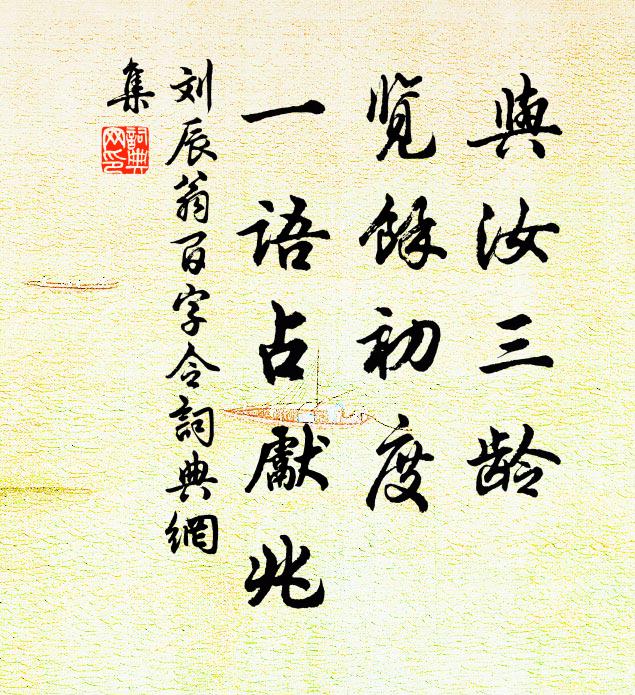 與汝三龄
覽餘初度
一語占獻兆
刘辰翁百字令詞典網
集
詞典
网印